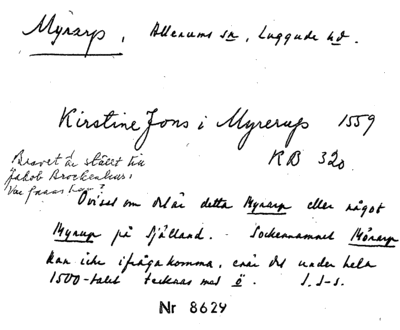 Myrarp, Allerums sn, Luggude hd.
Kirstine Jons i Myrerup 1559
KB 320
Brevet är ställt till
Jakob Brockenhus,
Var fanns han?
Ovisst om det är detta Myrarp eller något
Myrup på Själland. - Sockennamnet Mörarp
kan icke ifrågakomma, enär det under hela
1500-talet tecknas med ö. I. S-s.
Nr 8629